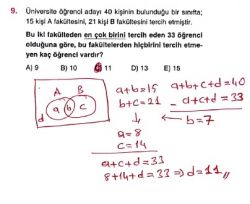 9. Üniversite öğrenci adayı 40 kişinin bulunduğu bir sınıfta;
15 kişi A fakültesini, 21 kişi B fakültesini tercih etmiştir.
Bu iki fakülteden en çok birini tercih eden 33 öğrenci
olduğuna göre, bu fakültelerden hiçbirini tercih etme-
yen kaç öğrenci vardır?
A) 9 B) 10 C) 11 D) 13 E) 15
A B
a b c
d
a+b=15
b+c=21
a+b+c+d=40
- a+c+d=33
b=7
a=8
c=14
a+c+d=33
8+14+d=33 => d=11